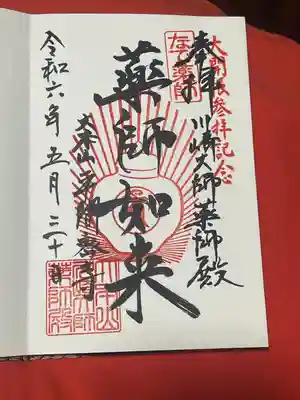 大開帳参拝記念
奉拝
川崎大師薬師殿
なで薬師
薬師如来
大本山平間寺
令和六年五月三十日